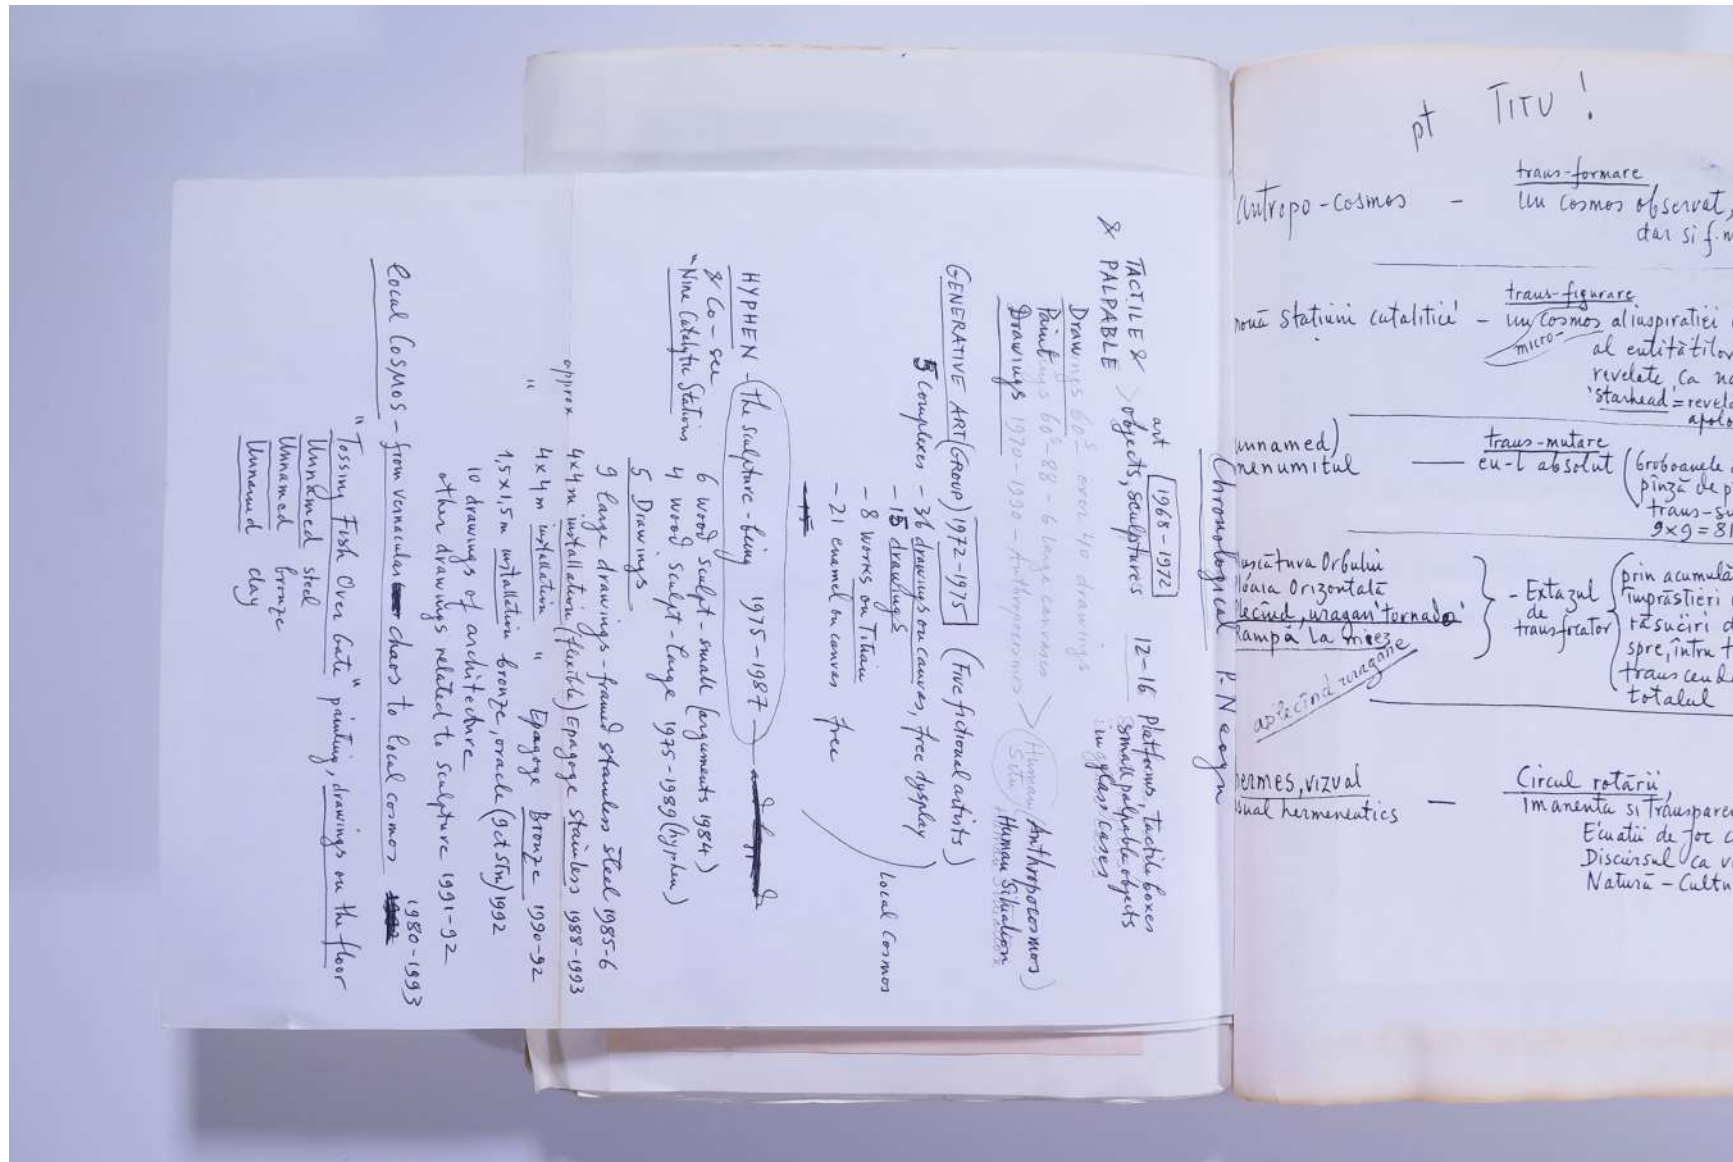 Chronological P. Neagu
TACTILE & art 1968-1972
& PALPABLE > objects, sculptures 12-16 platforms, tactile boxes
small palpable objects
in glass cases
Drawings 60s even 40 drawings
Paintings 60s-88 - 6 large canvases
Drawings 1970-1990 - Anthropocosmos > (Human/Anthropocosmos)
Situ Human Situation
GENERATIVE ART (GROUP) 1972-1975 (Five fictional artists)
5 Complexes - 36 drawings on canvas, free dysplay
- 15 drawings
- 8 works on Titian
- 21 enamel on canvas free
Local Cosmos
HYPHEN - the sculpture-being 1975-1987 -
& Co-see
"Nine Catalytic Stations
6 wood sculpt - small (arguments 1984)
4 wood sculpt - large 1975-1989 (hyphen)
5 Drawings
9 large drawings - framed stainless steel 1985-6
approx 4x4 m installation (flexible) Epagoge stainless 1988-1993
" 4x4 m installation " Epagoge Bronze 1990-92
1,5 x 1,5 m installation bronze, oracle (9ctstn) 1992
10 drawings of architecture
other drawings related to sculpture 1991-92
Local Cosmos - from vernacular chaos to local cosmos 1980-1993
"Tossing Fish Over Gate" painting, drawings on the floor
Unnamed steel
Unnamed bronze
Unnamed clay
pt TITU!
trans-formare
Antropo-cosmos - Un cosmos observat,
dar si f.m
trans-figurare
nouă Statiuni catalitice - un cosmos al inspiratiei
micro-
al entitătilor
revelate, ca
'starhead' = revel
apolo
trans-mutare
unnamed)
nenumitul - eu-l absolut (broboanele
pînză de p
trans-su
9x9=81
uscătura Orbului
loaia Orizontală
lecînd, uragan 'tornado'
Rampă la miez
aplecînd uragane
- Extazul
de
transficator
prin acumulă
împrăstieri
răsuciri d
spre, întru t
transcend
totalul
hermes, vizual
sual hermeneutics - Circul rotării,
Imanenta si Transparen
Ecuatii de joc c
Discursul ca v
Natură - Cultu